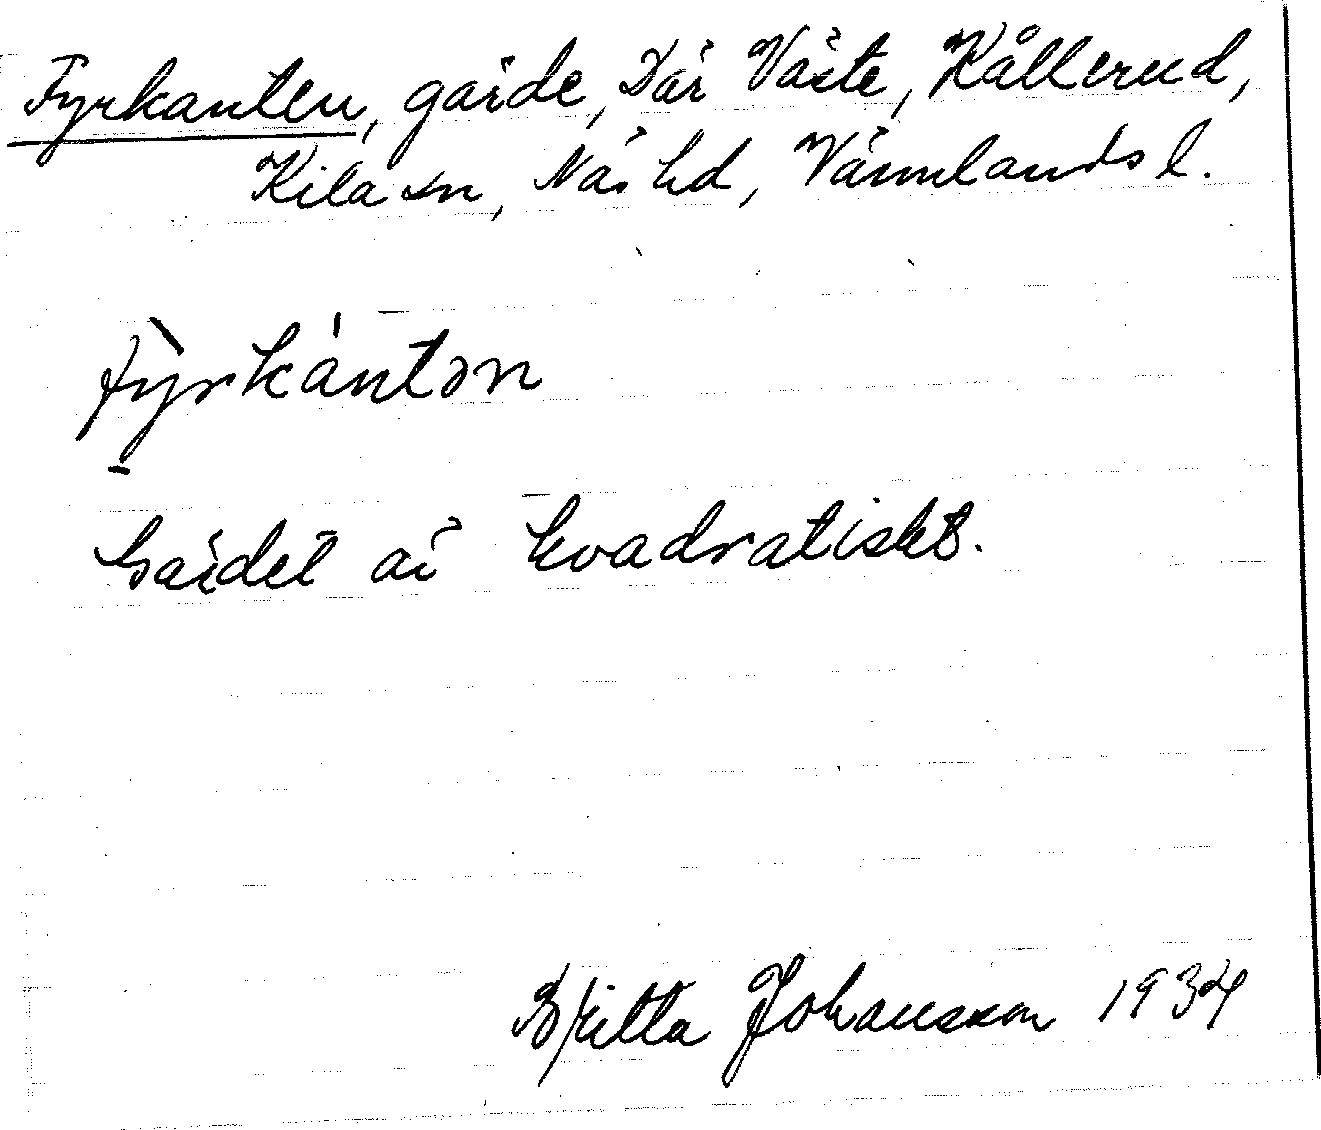 Fyrkanten, gärde, Där Väste, Kållerud,
Kila sn, Näs hd, Värmlands l.
fỳrkánton
Gärdet är kvadratiskt.
Britta Johansson 1934